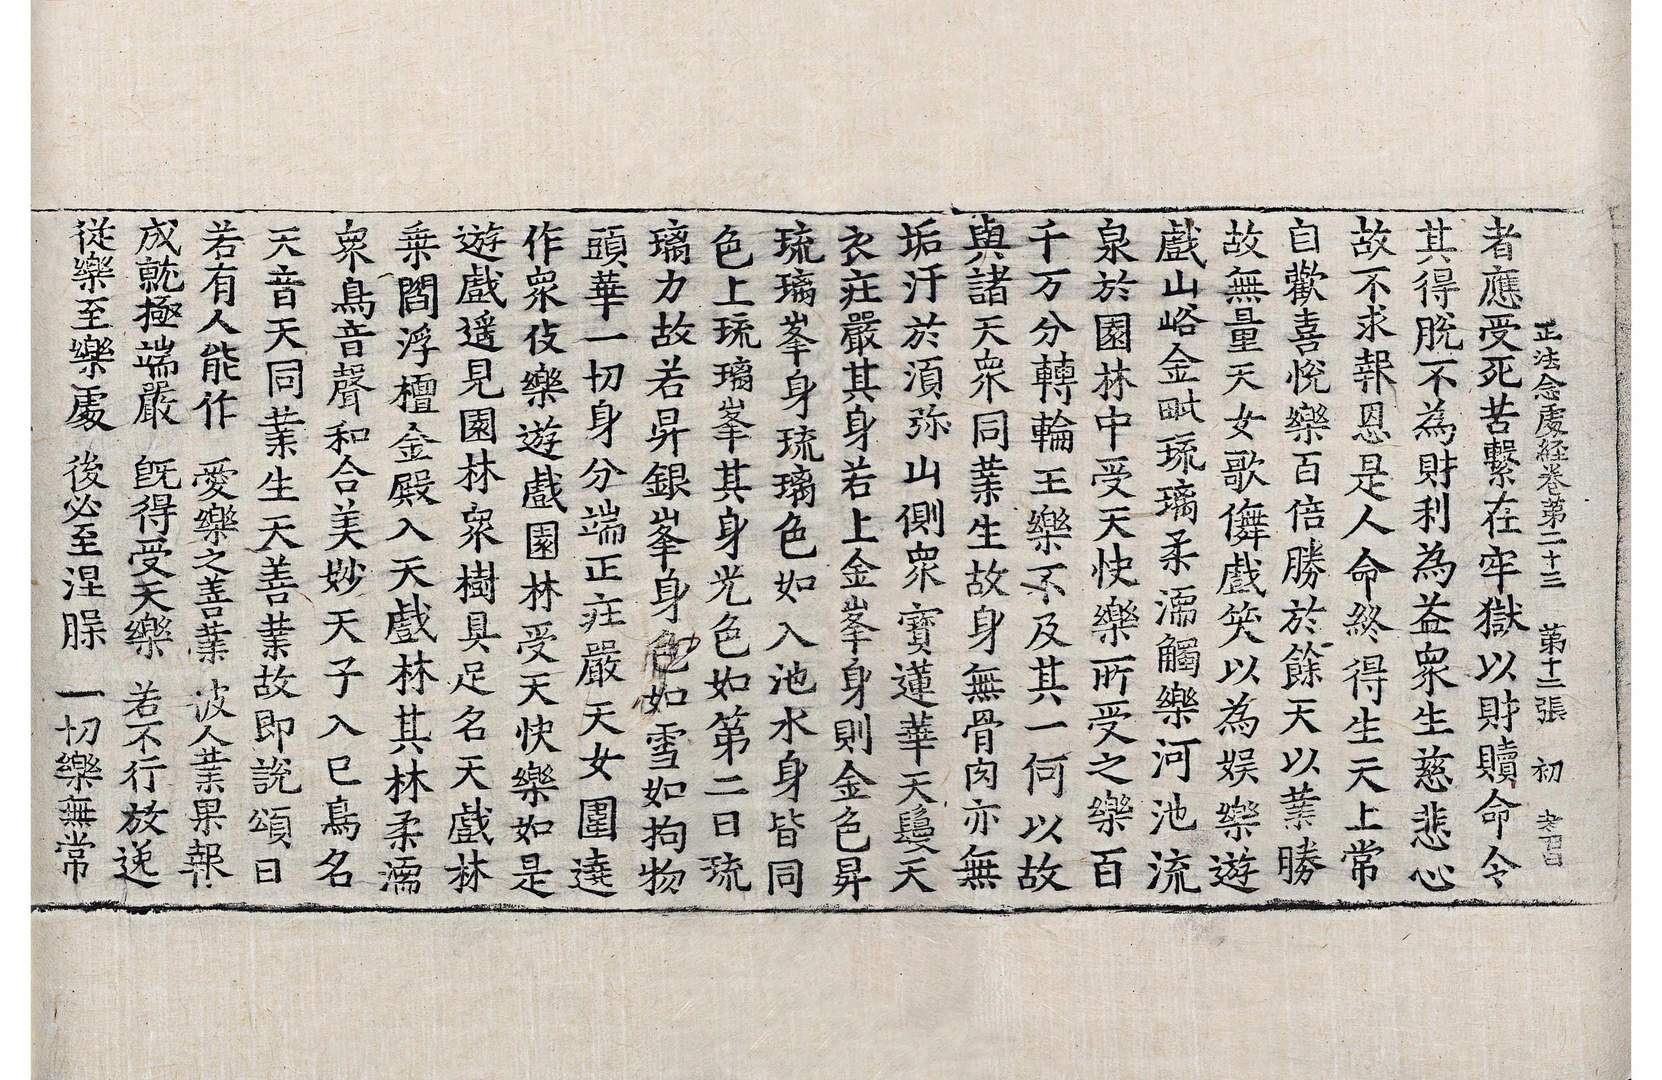 正法念處経卷第二十三 第十二張 初
者應受死苦繫在牢獄以財贖命令
其得脫不為財利為益衆生慈悲心
故不求報恩是人命終得生天上常
自歡喜悅樂百倍勝於餘天以業勝
故無量天女歌儛戲笑以為娛樂遊
戲山峪金毗琉璃柔濡觸樂河池流
泉於園林中受天快樂所受之樂百
千万分轉輪王樂不及其一何以故
與諸天衆同業生故身無骨肉亦無
垢汙於湏弥山側衆寶蓮華天鬘天
衣莊嚴其身若上金峯身則金色昇
琉璃峯身琉璃色如入池水身皆同
色上琉璃峯其身光色如第二日琉
璃力故若昇銀峯身色如雪如拘物
頭華一切身分端正莊嚴天女圍遶
作衆伎樂遊戲園林受天快樂如是
遊戲遥見園林衆樹具足名天戲林
乗閻浮檀金殿入天戲林其林柔濡
衆鳥音聲和合美妙天子入已鳥名
天音天同業生天善業故即說頌曰
若有人能作 愛樂之善業 彼人業果報
成就極端嚴 旣得受天樂 若不行放逸
從樂至樂處 後必至涅槃 一切樂無常